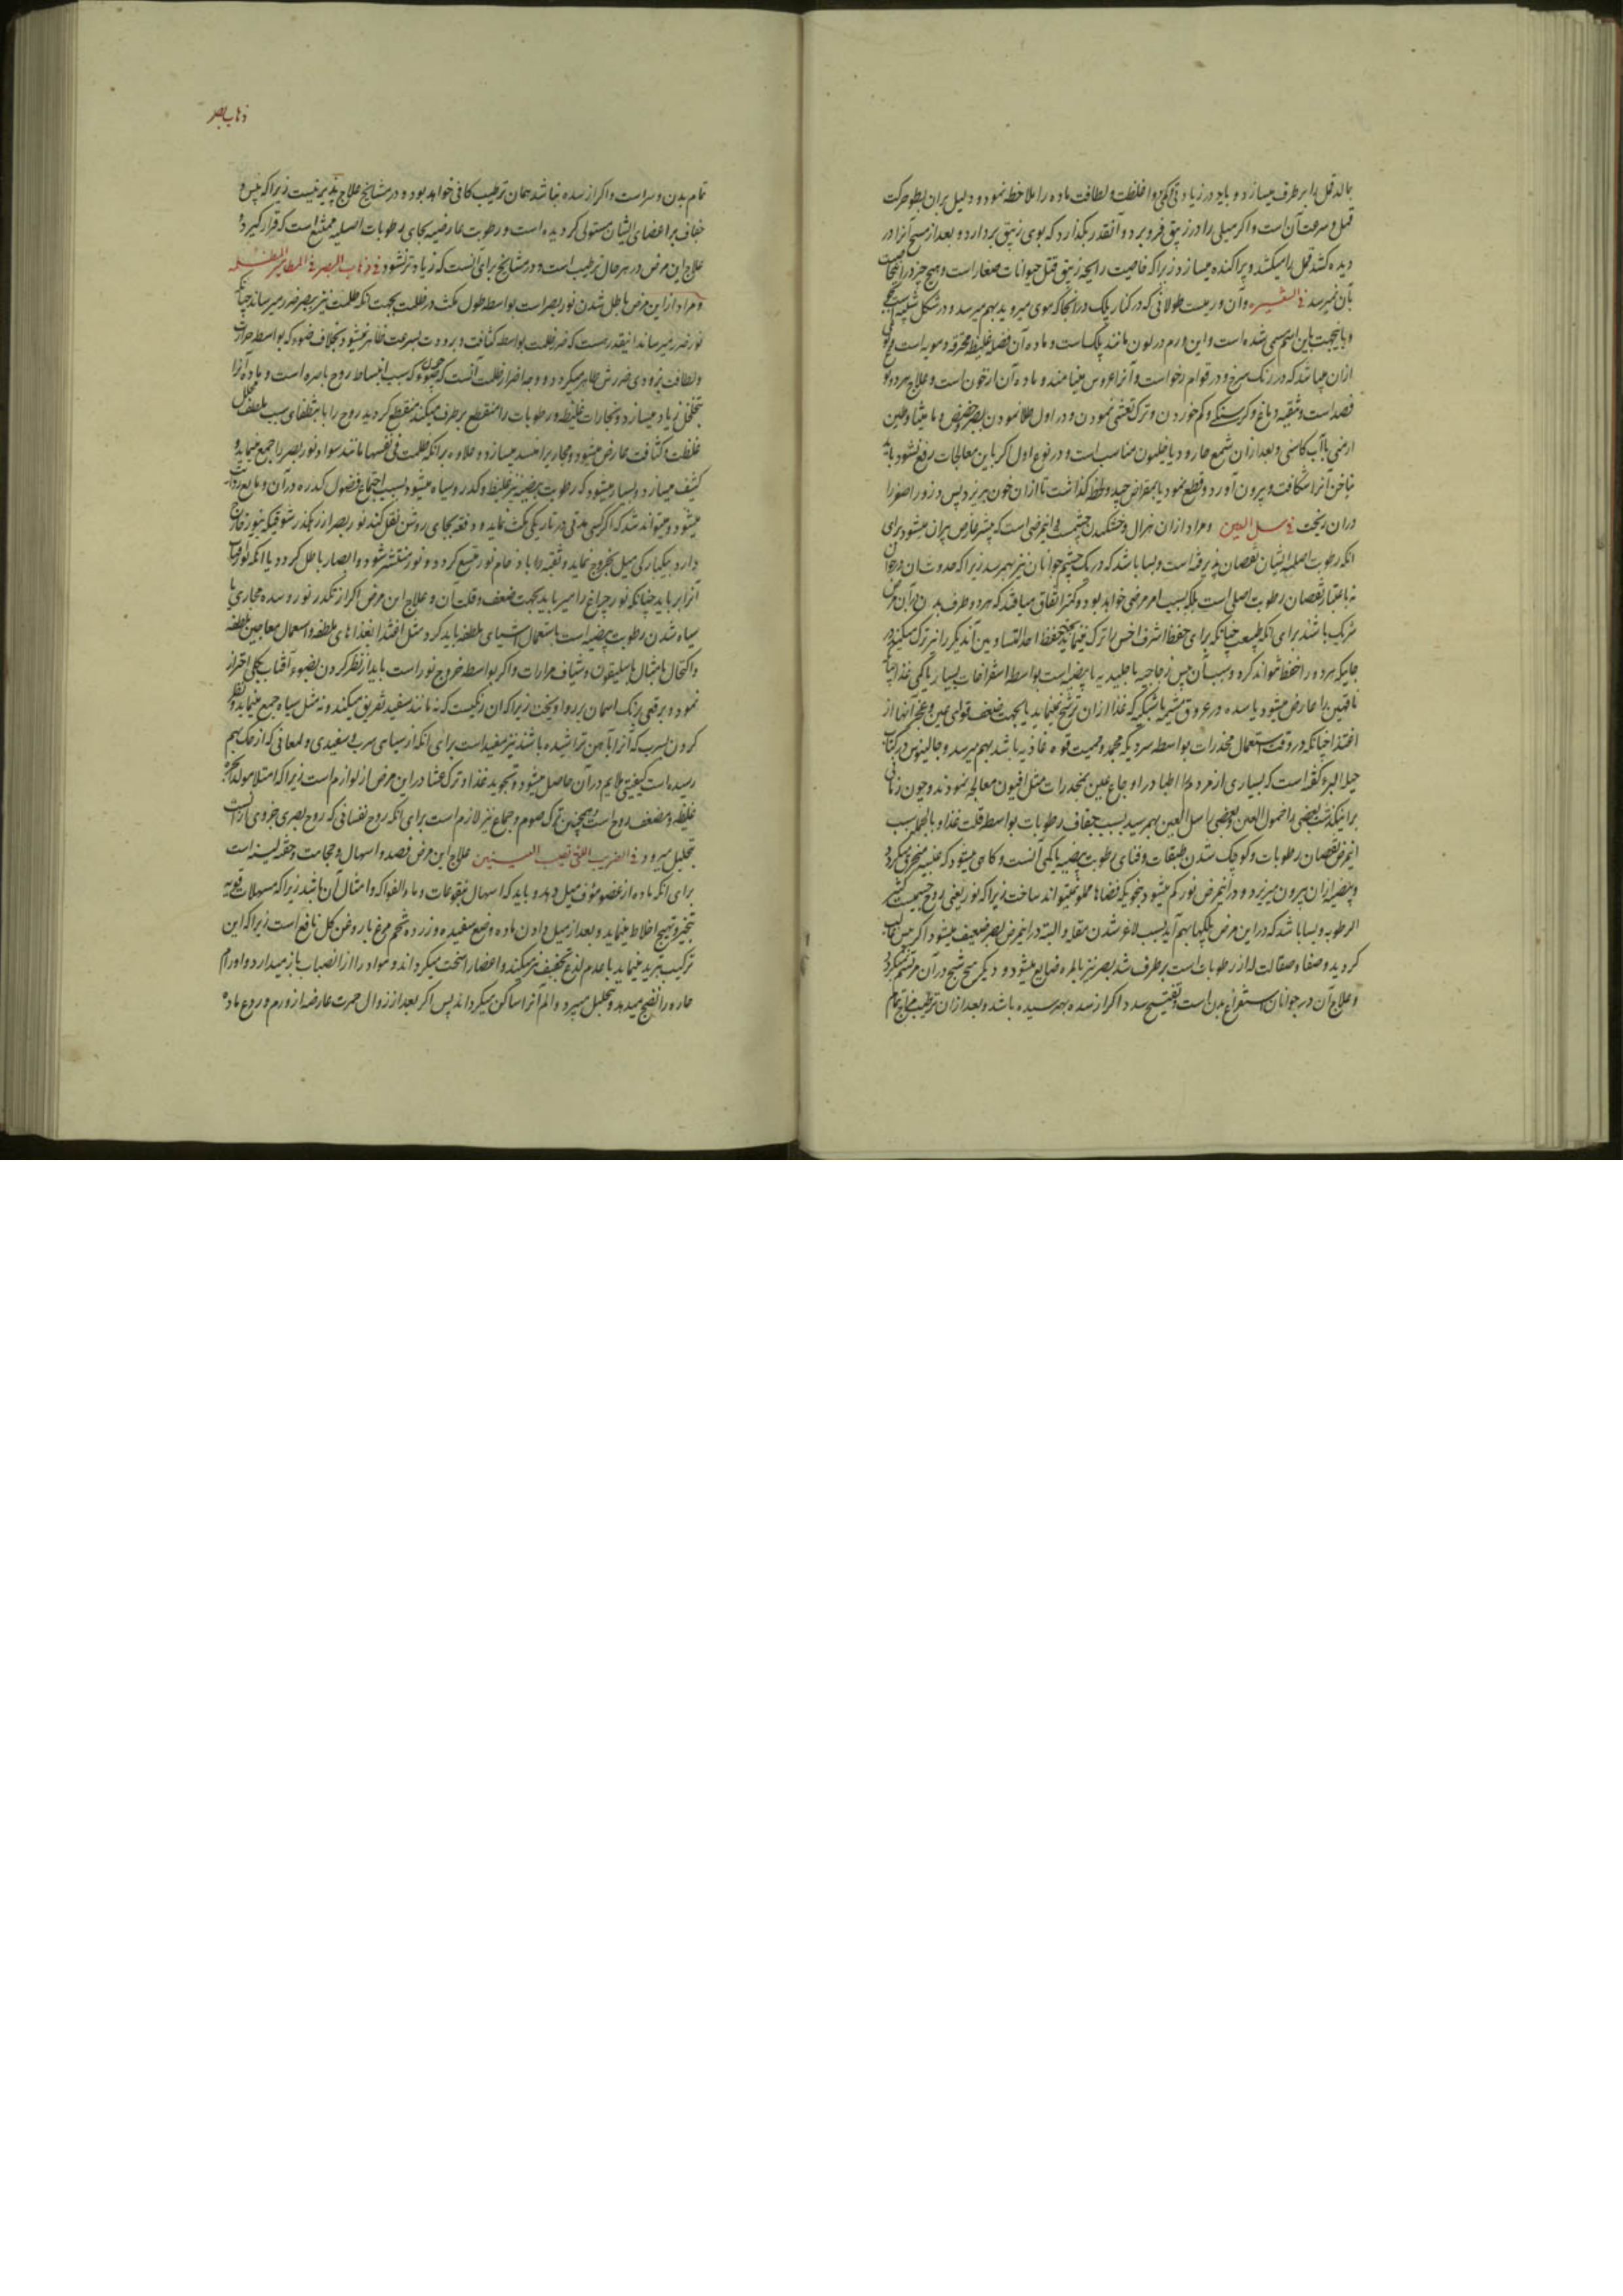 بالد قمل را برطرف میسازد و باید در زیادتی و کمی دوا غلظت و لطافت ماده را ملاحظه نمود و دلیل بر ان بطوء حرکت
قمل و سرعت آن است و اکر میلی را در زیبق فرو برد و آنقدر بکذارد که بوی زیبق بردارد و بعد از مسح آنرا در
دیده کشد قمل را میکشد و پراکنده میسازد زیرا که خاصیت رایحه زیبق قتل حیوانات صغار است و هیچ چیز در اینجا
بآن نمیرسد فی الشعیره و آن ورمیست طولانی که در کنار پلک در انجا که موی میروید بهم میرسد و در شکل شبیه است
و باینجهت باین اسم مسمی شده است و این ورم در لون مانند پلک است و ماده آن فضله غلیظ محترقه دمویه است و
ازان میباشد که در رنک سرخ و در قوام رخو است و آنرا عروس مینامند و ماده آن از خون است و علاج هر دو نوع
فصد است و تنقیه دماغ و کرسنکی و کم خوردن و ترک تعشی نمودن و در اول طلا نمودن بصبر و حضض و مامیثا و طین
ارمنی با آب کاسنی و بعد ازان شمع حار و دیاخیلون مناسب است و در نوع اول اکر باین معالجات رفع نشود باید
بناخن آنرا شکافت و بیرون آورد و قطع نمود یا بمقراض چید و لحظه کذاشت تا ازان خون بریزد پس ذرور اصفر را
دران ریخت فی سل العین و مراد ازان هزال و خشکیدن چشمست و اینمرضی است که بیشتر عارض پیران میشود برای
انکه رطوبت اصلیه ایشان نقصان پذیرفته است و بسا باشد که در یک چشم جوانان نیز بهم رسد زیرا که حدوث آن در جوانان
نه باعتبار نقصان رطوبت اصلی است بلکه بسبب امر مرضی خواهد بود و کمتر اتفاق میافتد که هر دو طرف بدن در آن مرض
شریک باشند برای انکه طبیعت چنانکه برای حفظ اشرف اخس را ترک مینماید بجهت حفظ احد المتساویین آن دیکر را نیز ترک میکند در
جاییکه هر دو را حفظ نتواند کرد و سبب آن یبس زجاجیه یا جلیدیه یا بیضیه است بواسطه استفراغات بسیار یا کمی غذا چنانکه
ناقهین را عارض میشود یا سده در عروق مشیمه یا شبکیه که غذا ازان ترشح مینماید یا بجهت ضعف قوای عین و عجز آنها از
اغتذا چنانکه در وقت استعمال مخدرات بواسطه سردی که مجمد و ممیت قوه غاذیه باشد بهم میرسد و جالینوس در کتاب
حیلة البرء کفته است که بسیاری از مردم را اطبا در اوجاع عین بمخدرات مثل افیون معالجه نمودند و چون زمانی
بر اینکذشت بعضی را خمول العین و بعضی را سل العین بهم رسید بسبب جفاف رطوبات بواسطه قلت غذا و بالجمله سبب
اینمرض نقصان رطوبات و کوچک شدن طبقات و فنای رطوبت بیضیه یا کمی آنست و کاهی میشود که عنبیه منخرق میکردد
و بیضیه ازان بیرون میریزد و در اینمرض نور کم میشود بنحویکه فضا را مملو نمیتواند ساخت زیرا که نور یعنی روح جسمیست کثیر
الرطوبه و بسا باشد که در این مرض پلکها بهم آید بسبب لاغر شدن مقله و البته در اینمرض بصر ضعیف میشود اکر یبس غالب
کردید و صفا و صقالت که از رطوبات است برطرف شد بصر نیز بالمره ضایع میشود و دیکر هیچ شبح در آن مرتسم نمیکردد
و علاج آن در جوانان استفراغ بدن است و تفتیح سدد اکر از سده بهم رسیده باشد و بعد ازان ترطیب مزاج تمام
ذهاب بصر
تمام بدن و سر است و اکر از سده نباشد همان ترطیب کافی خواهد بود و در مشایخ علاج پذیر نیست زیرا که یبس و
جفاف بر اعضای ایشان مستولی کردیده است و رطوبت عارضیه بجای رطوبات اصلیه ممتنع است که قرار کیرد و
علاج این مرض در هر حال ترطیب است و در مشایخ برای آنست که زیادتر نشود فی ذهاب البصر فی المطامیر المظلمه
و مراد از این مرض باطل شدن نور بصر است بواسطه طول مکث در ظلمت بجهت انکه ظلمت نیز ببصر ضرر میرساند چنانکه
نور ضرر میرساند اینقدر هست که ضرر ظلمت بواسطه کثافت و برودت بسرعت ظاهر نمیشود بخلاف ضوء که بواسطه حرارت
و لطافت بزودی ضررش ظاهر میکردد و وجه اضرار ظلمت آنست که چون ضوء که سبب انبساط روح باصره است و ماده آنرا
بتخلخل زیاد میسازد و بخارات غلیظه و رطوبات را منقطع برطرف میکند منقطع کردید روح را بانطفای سبب ملطف محلل
غلظت و کثافت عارض میشود و مجاری را منسد میسازد و علاوه بر انکه ظلمت فی نفسها مانند سواد نور بصر را جمع مینماید و
کثیف میسازد و بسیار میشود که رطوبت بیضیه نیز غلیظ و کدر و سیاه میشود بسبب اجتماع فضول کدره در آن و مانع رؤیت
میشود و میتواند شد که اکر کسی مدتی در تاریکی مکث نماید و دفعه بجای روشن نقل کند نور بصر از رهکذر شوقیکه بنور خارج
دارد بیکبارکی میل بخروج نماید و ثقبه را باد خام نور متسع کردد و نور منتشر شود و ابصار باطل کردد یا انکه نور آفتاب
آنرا برباید چنانکه نور چراغ را میرباید بجهت ضعف و قلت آن و علاج این مرض اکر از تکدر نور و سده مجاری یا
سیاه شدن رطوبت بیضیه است باستعمال اشیای ملطفه باید کرد مثل اغتذا بغذاهای ملطفه و استعمال معاجین ملطفه
و اکتحال بامثال باسلیقون و شیاف مرارات و اکر بواسطه خروج نور است باید از نظر کردن بضوء آفتاب بکلی احتراز
نمود و برقعی برنک اسمان بر رو اویخت زیرا که ان رنکیست که نه مانند سفید تفریق میکند و نه مثل سیاه جمع مینماید و نظر
کردن بسرب که آنرا بآهن تراشیده باشند نیز مفید است برای انکه از سیاهی سرب و سفیدی و لمعانی که از حک بهم
رسیده است کیفیتی ملایم در آن حاصل میشود و تجوید غذا و ترک عشا در این مرض از لوازم است زیرا که امتلا مولد ابخره
غلیظه و مضعف روح است و همچنین ترک صوم و جماع نیز لازم است برای انکه روح نفسانی که روح بصری جزوی از آنست
بتحلیل میرود فی الضربه التی تصیب العینین علاج این مرض فصد و اسهال و حجامت و حقنه لینه است
برای انکه ماده از عضو مؤف میل دهد و باید که اسهال بنقوعات و ماء الفواکه و امثال آن باشد زیرا که مسهلات قویه
تبخیر و تهییج اخلاط مینماید و بعد از میل دادن ماده وضع سفیده و زرده تخم مرغ با روغن کل نافع است زیرا که این
ترکیب تبرید مینماید با عدم لذع و تخفیف نیز میکند و اعضا را سخت میکرداند و مواد را از انصباب باز میدارد و اورام
حاره را نضج میدهد و بتحلیل میبرد و الم آنرا ساکن میکرداند پس اکر بعد از زوال حمرت عارضه از ورم و ردع ماده